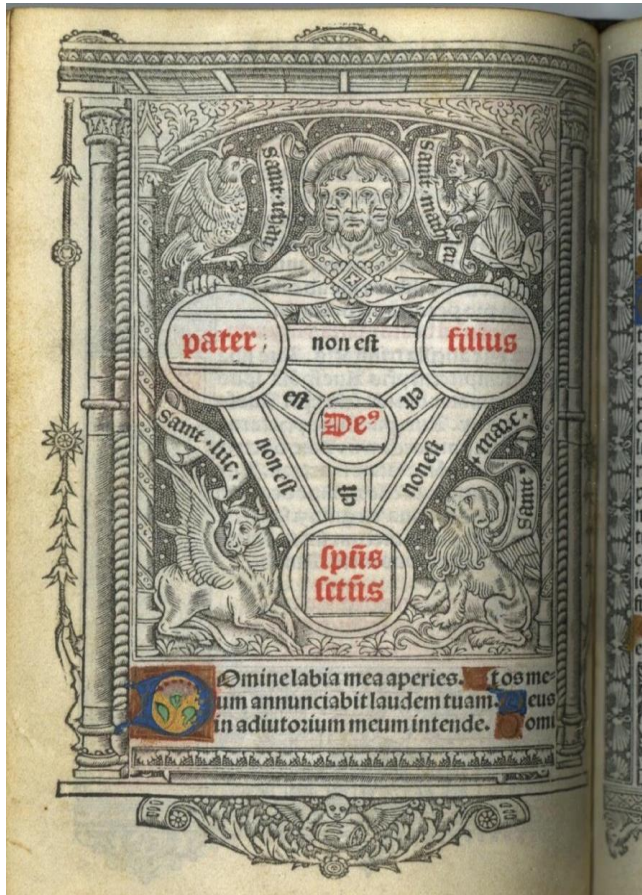 saint · iehan
saint · mathieu
pater
non est
filius
est
est
De⁹
saint · luc ·
non est
est
non est
saint · marc ·
ſpūs
ſctūs
DOmine labia mea aperies. Et os me=
um annunciabit laudem tuam. Deus
in adiutorium meum intende. Domi